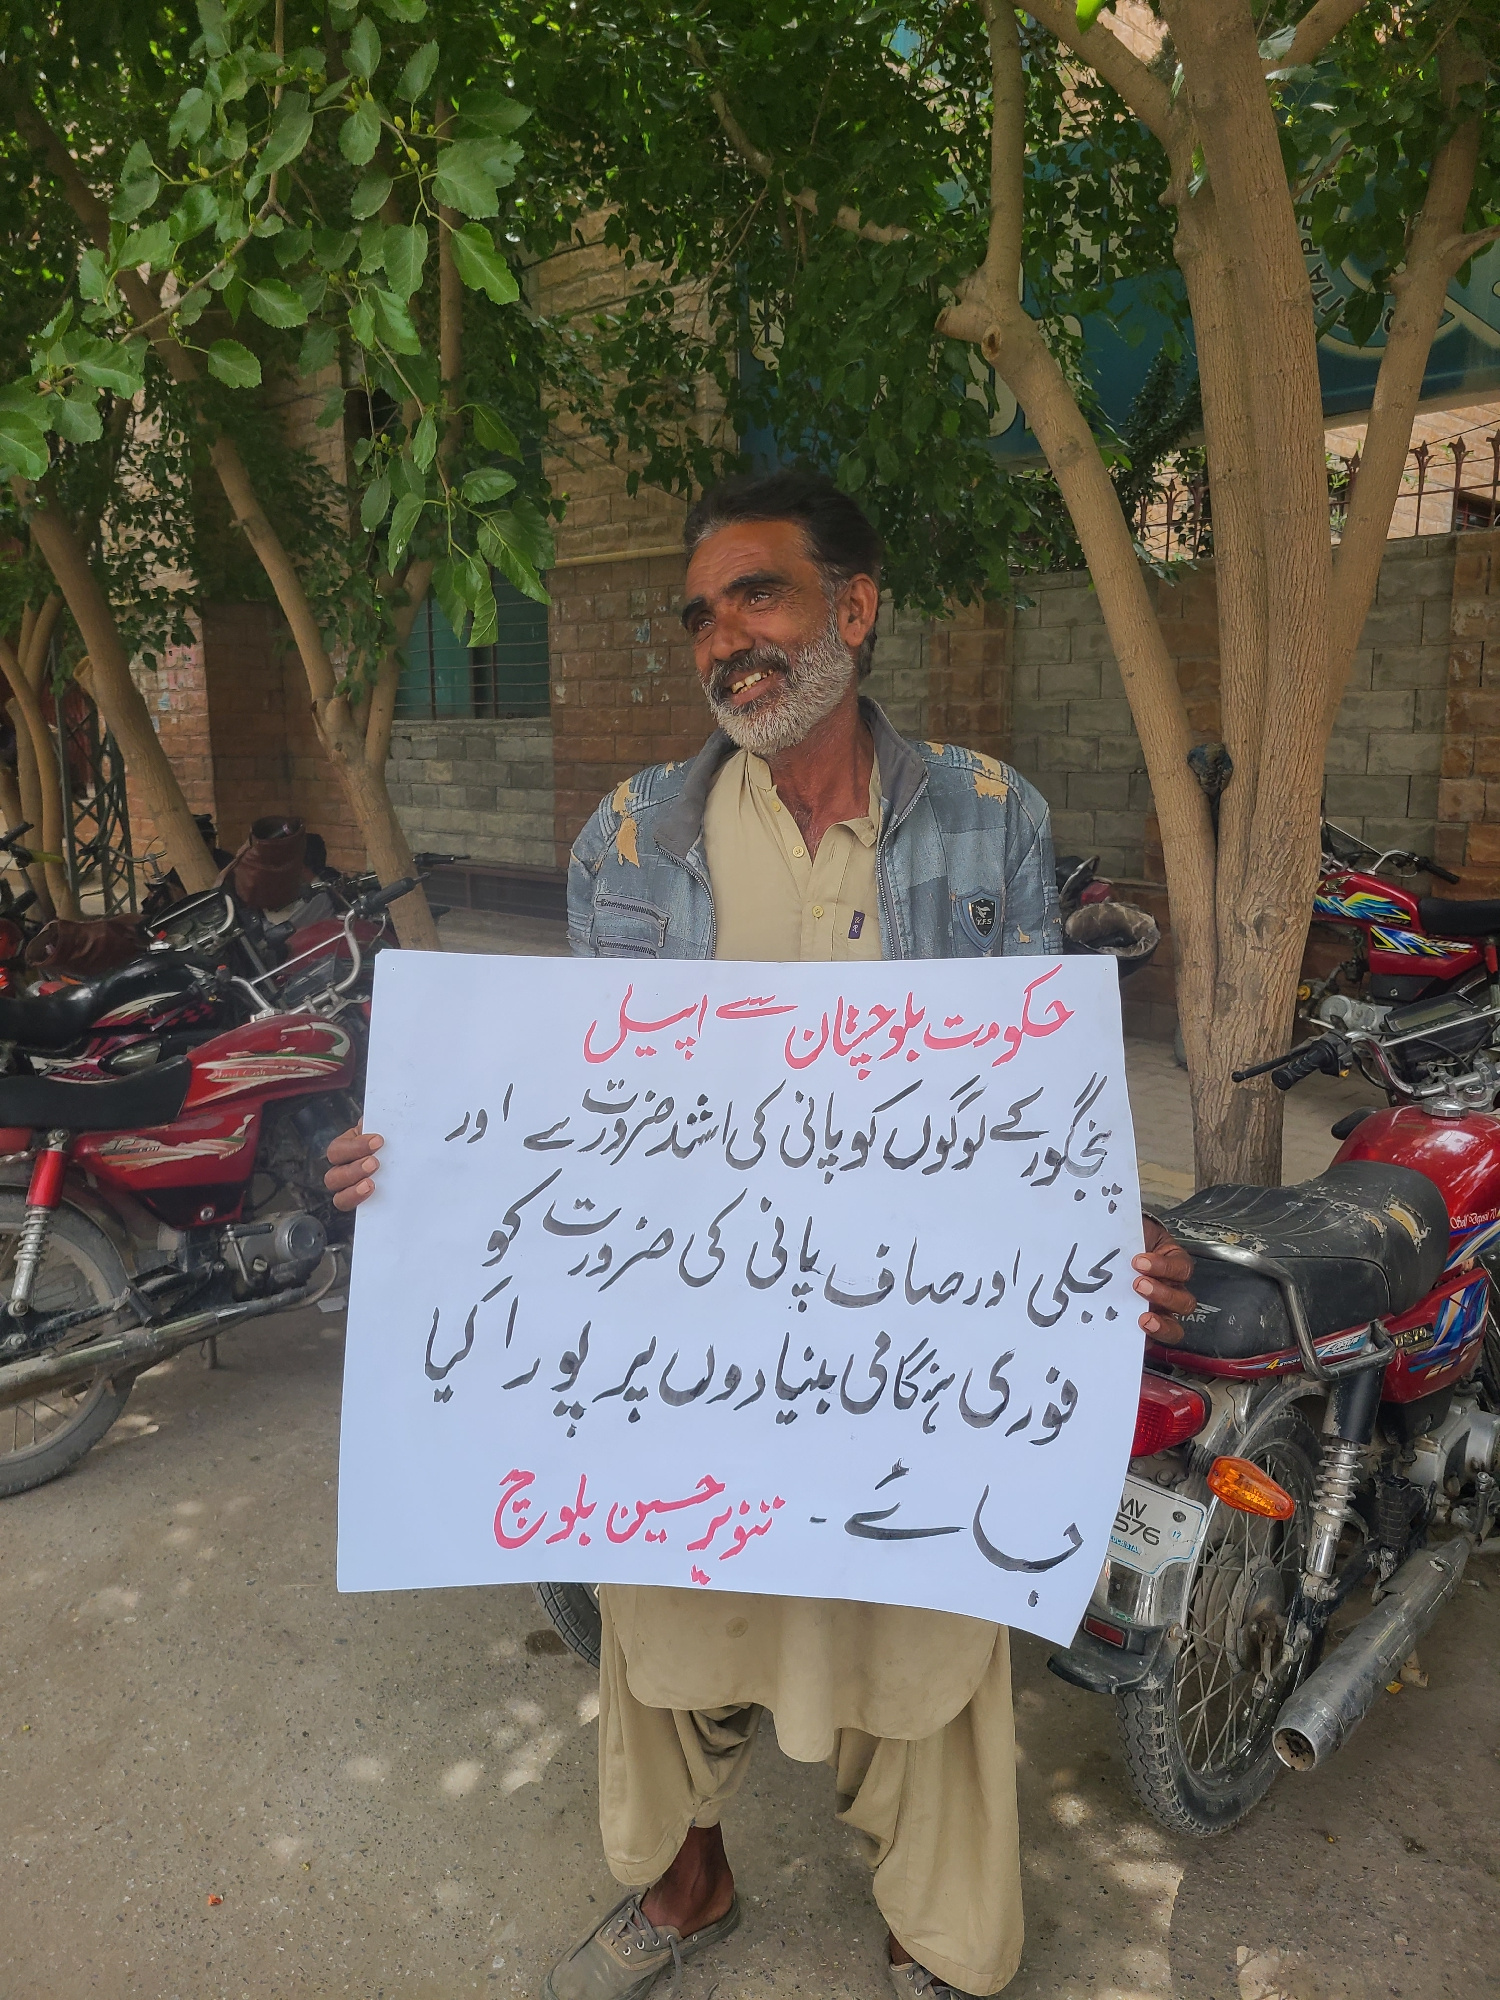 حکومت بلوچستان سے اپیل
پنجگور کے لوگوں کو پانی کی اشد ضرورت ہے اور
بجلی اور صاف پانی کی ضرورت کو
فوری ہنگامی بنیادوں پر پورا کیا
جائے ۔ تنویر حسین بلوچ
Y.F.S
MV
576
17
Self Depend 70
STAR